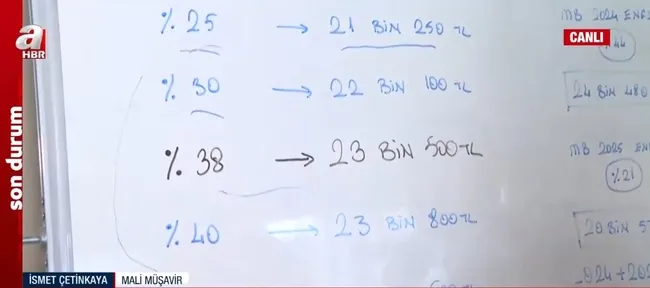 a
HBR
son durum
% 25 → 21 BİN 250 TL
% 30 → 22 BİN 100 TL
% 38 → 23 BİN 500 TL
% 40 → 23 BİN 800 TL
MB 2024 ENF
%44
24 BİN 480
MB 2025 EN
%21
20 BİN 5
CANLI
İSMET ÇETİNKAYA MALİ MÜŞAVİR